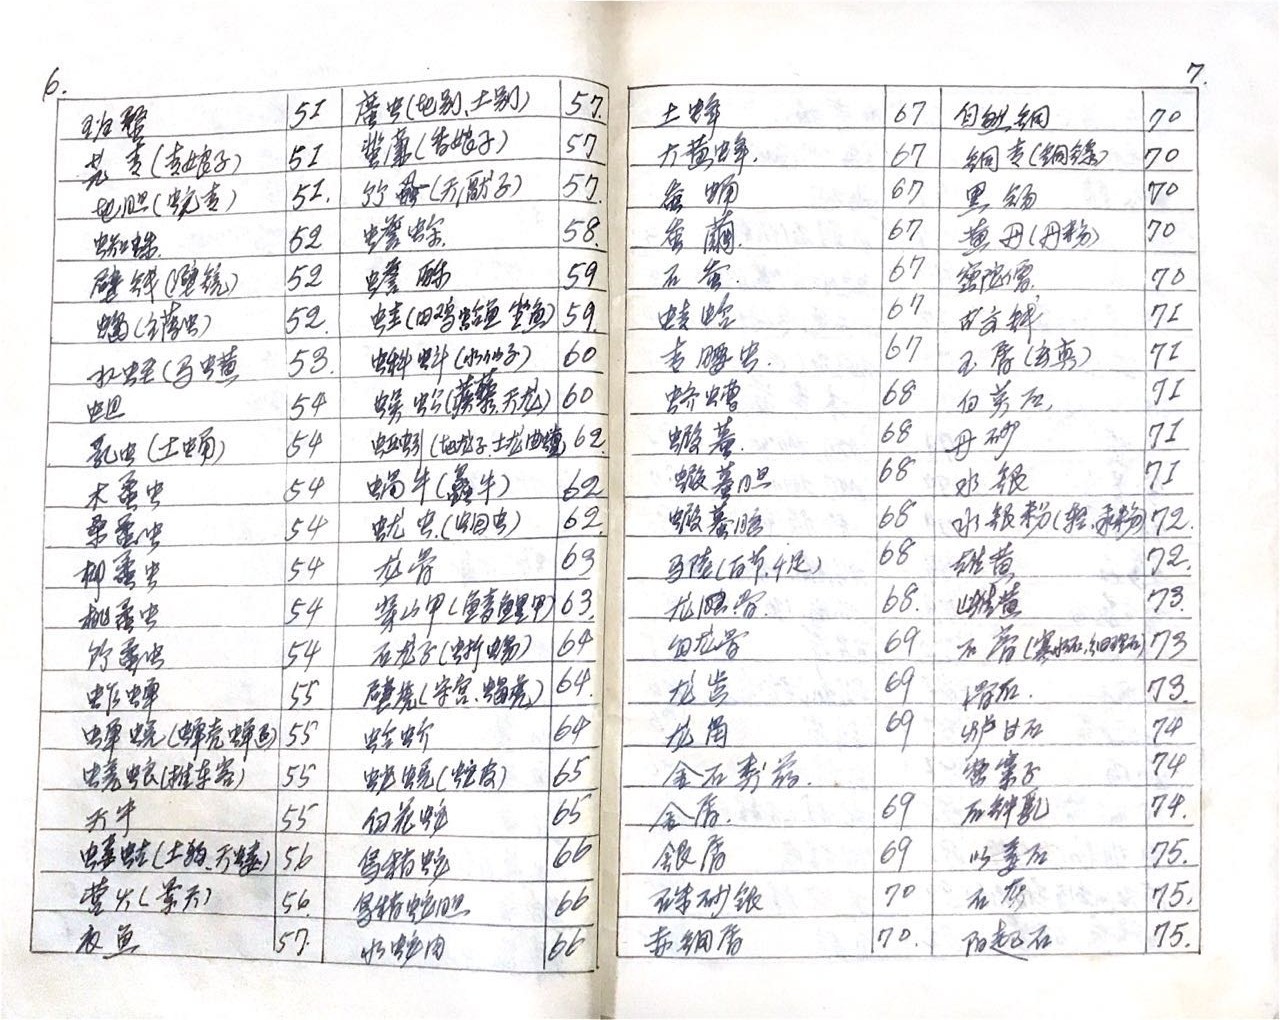 6.
斑蝥 51 䗪虫(地别、土别) 57.
芫青(青娘子) 51 蜚蠊(香娘子) 57
地胆(蚖青) 51. 竹(天厭子) 57.
蜘蛛 52 蟾蜍 58.
壁钱(壁镜) 52 蟾酥 59
蝎(主薄虫) 52. 蛙(田鸡 蛤鱼 坐鱼) 59
水蛭(马蟥 53. 蝌蚪(水仙子) 60
蛆 54 蜈蚣(蒺藜、天龙) 60
乳虫(土蛹) 54 蚯蚓(地龙子 土龙 曲蟮) 62.
木蠹虫 54 蝸牛(蠡牛) 62
桑蠹虫 54 蚘虫(蛔虫) 62
柳蠹虫 54 龙骨 63
桃蠹虫 54 穿山甲(鲮鲤甲) 63.
竹蠹虫 54 石龙子(蜥蜴) 64
蚱蝉 55 壁虎(守宫、蝎虎) 64.
蝉蜕(蝉壳 蝉退) 55 蛤蚧 64
蜣蜋(推车客) 55 蛇蜕(蛇皮) 65
天牛 55 白花蛇 65
蝼蛄(土狗、天蝼) 56 烏梢蛇 66
萤火(景天) 56. 烏梢蛇胆 66
衣鱼 57. 水蛇肉 66
7.
土蜂 67 自然銅 70
大黄蜂. 67 銅青(銅綠) 70
蚕蛹 67 黑锡 70
蚕繭. 67 黄丹(丹粉) 70
石蚕. 67 密陀僧 70
蛱蛤 67 古文钱 71
青腰虫. 67 玉屑(玄真) 71
蛴螬 68 白英石, 71
蝦蟇. 68 丹砂 71
蝦蟇胆 68 水银 71
蝦蟇脑 68 水银粉(轻、汞粉) 72.
马陸(百节、千足) 68 雄黄 72.
龙腦骨. 68. 雌黄 73.
白龙骨 69 石膏(寒水石、细理石) 73
龙齿 69 滑石. 73.
龙角 69 炉甘石 74
金石类药. 蜜栗子 74
金屑. 69 石鈡乳 74.
銀屑 69 砒黃石 75.
硃砂銀 70 石灰 75.
赤銅屑 70. 阳起石 75.